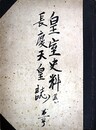 皇室史料
長慶天皇誌